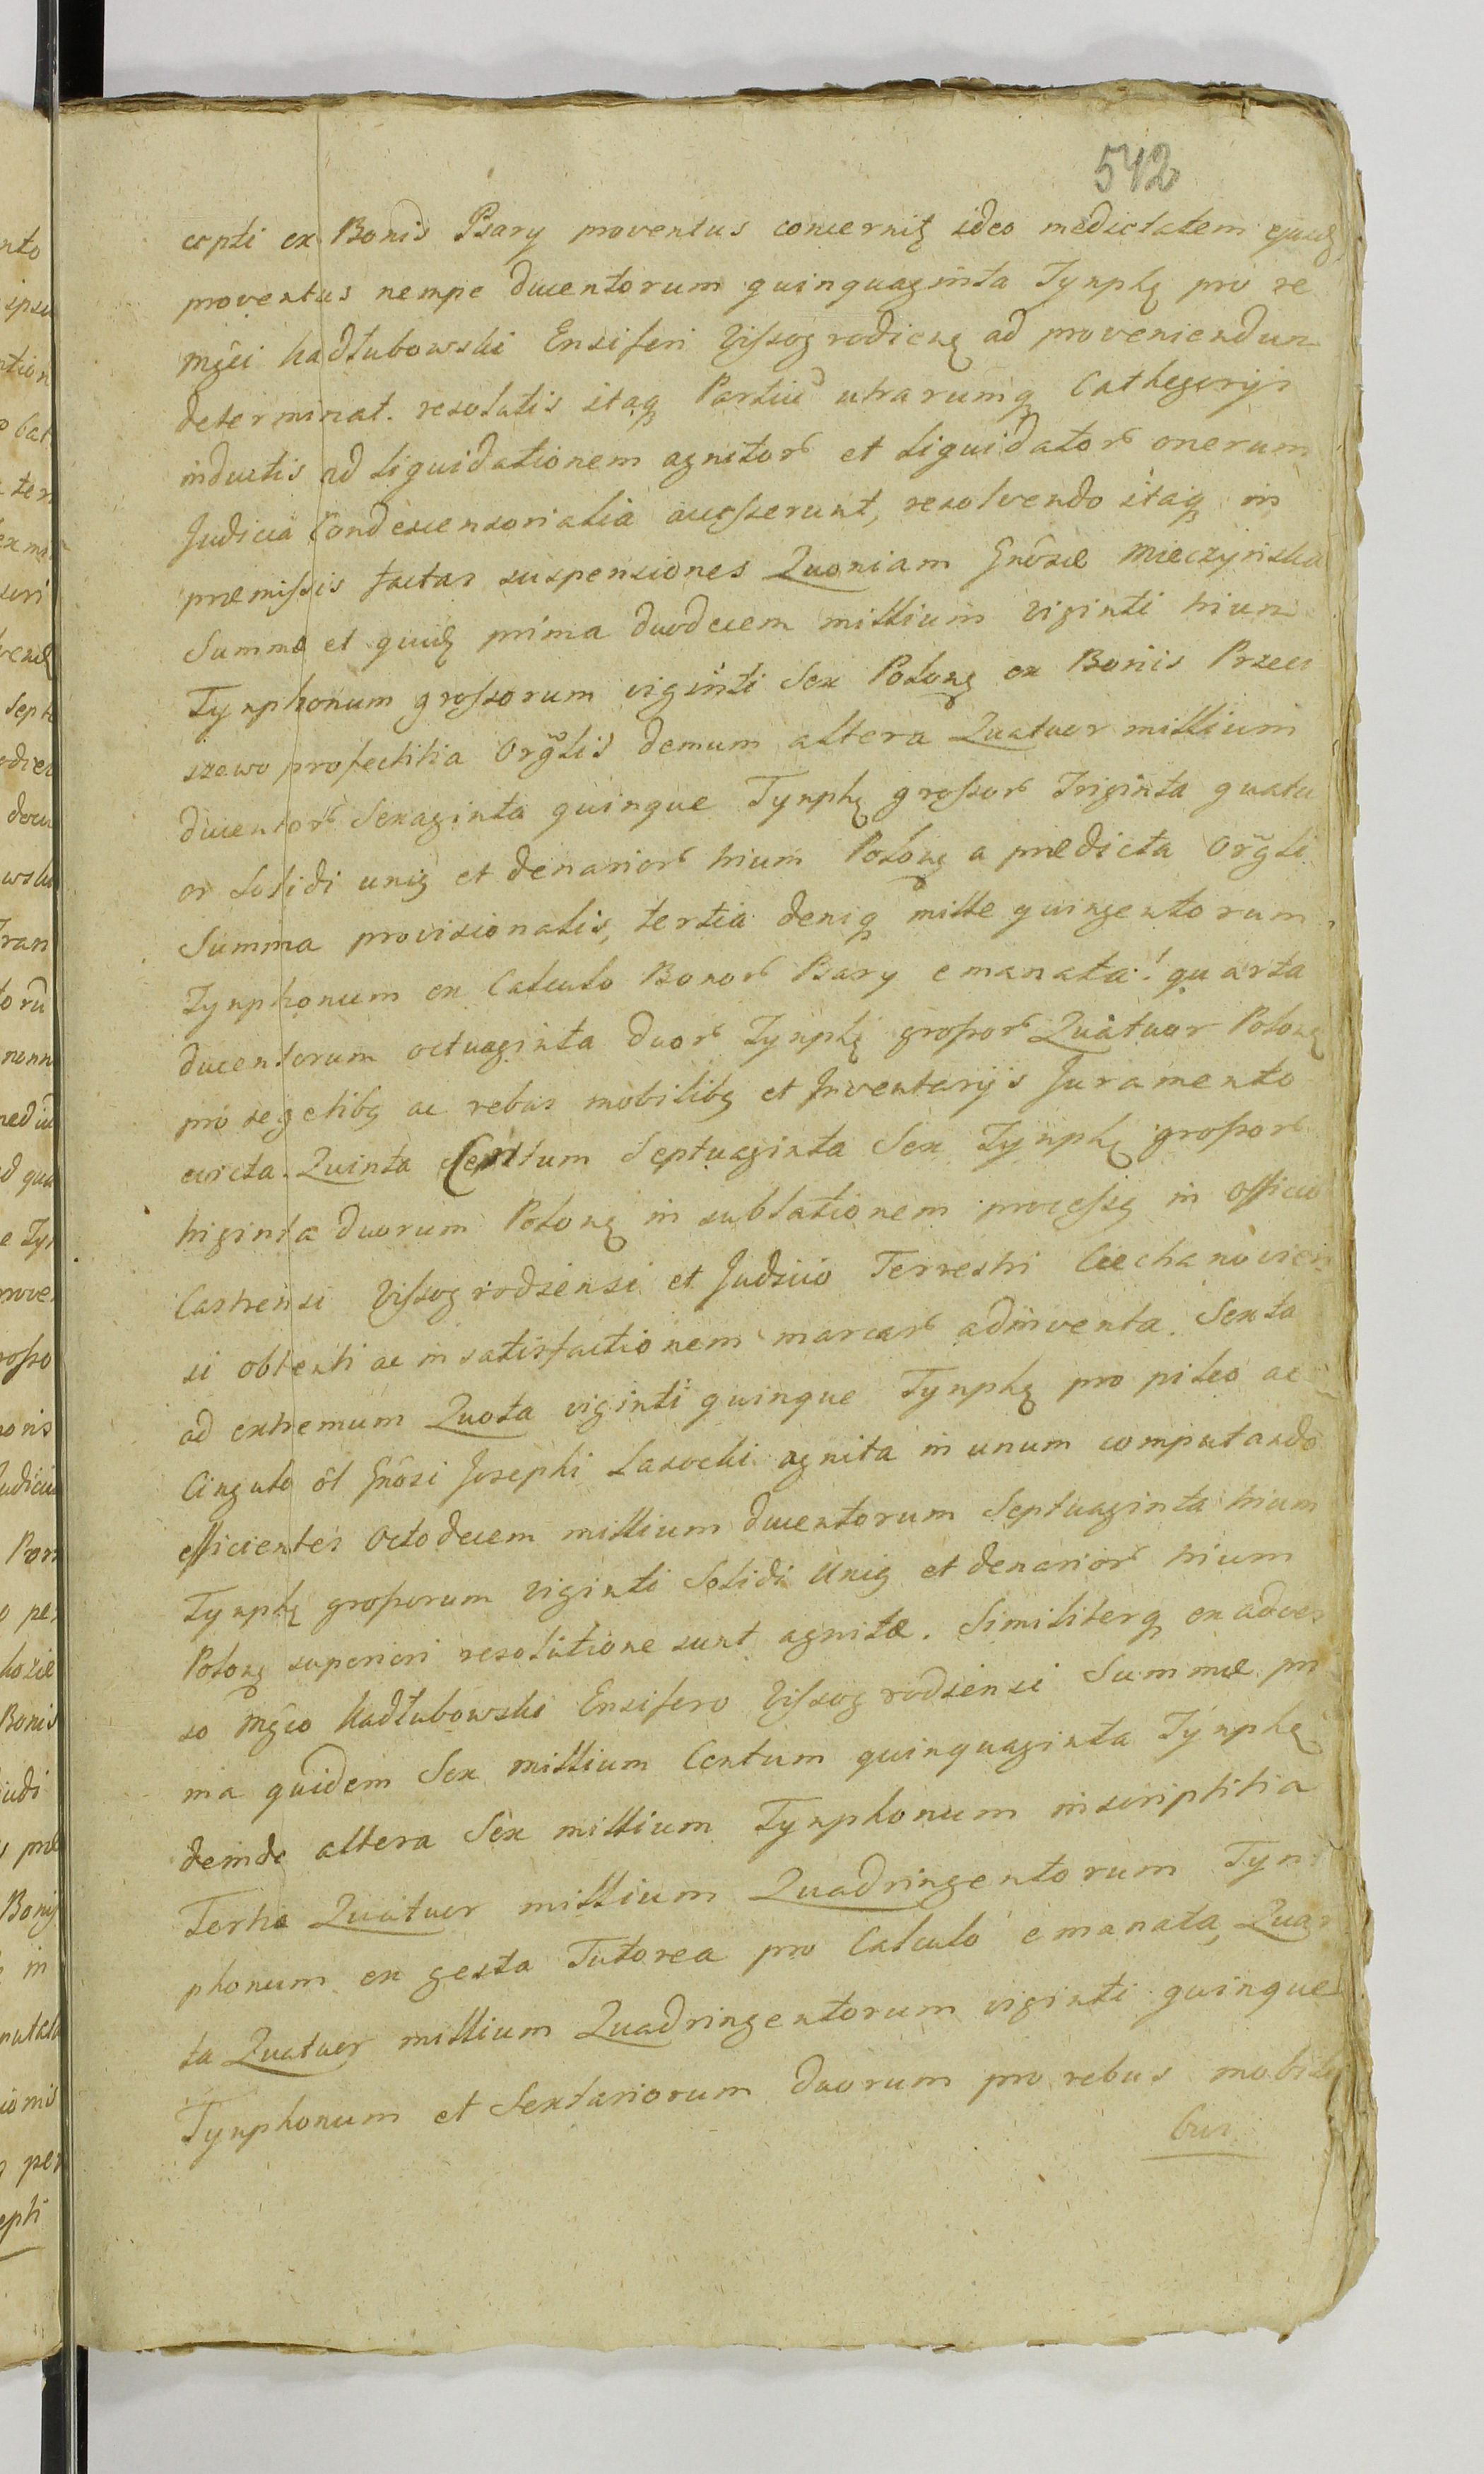 542
cepti ex Bonis Psary proventus concernit ideo medietatem ejusq
proventus nempe ducentorum quinquaginta Tympħ pro re
Mgci Kadłubowski Ensiferi Vissogrodien ad proveniendum
determinat. resolutis itaq Partiu utrarumq Cathegorijs
inductis ad liquidationem agnitor et liquidator onerum
Judicia Condescensorialia accesserunt, resolvendo itaq in
præmissis factas suspensiones Quoniam Gnosæ Mieczyńska
Summæ et quidq prima duodecem millium viginti trium
Tynphonum grossorum viginti Sex Polonq ex Bonis Przec
szewo profectitia Orglis demum altera Quatuor millium
ducentor Sexaginta quinque Tynphq grossor Triginta quatu
or Solidi uniq et denarior trium Polonq a prædicta Orgli
Summa provisionalis, tertia deniq mille quingentorum
Tynphonum ex Calculo Bonor Psary emanata! quarta
ducentorum octuaginta duor Tynphq grossor Quatuor Polonq
pro segetibq ac rebus mobilibq et Inventarijs Juramento
evicta. Quinta Centum Septuaginta Sex Tynphq grossor
triginta duorum Polonq in sublationem processq in Officio
Castrensi Vissogrodsensi et Judicio Terrestri Ciechanovien
si obtenti ac in satisfactionem marcar adinventa. Sexta
ad extremum Quota viginti quinque Tynphq pro pileo ac
Cingulo ol Gnosi Josephi Lasocki agnita in unum computando
efficientes Octodecem millium ducentorum Septuaginta trium
Tynphq grossorum viginti Solidi Uniq et denarior trium
Polonq superiori resolutione sunt agnitæ. Similiterq ex adver
so Mgco Kadłubowski Ensifero Vissogrodsensi Summæ pri
ma quidem Sex millium Centum quinquaginta Tynphq
deinde altera Sex millium Tynphonum inscriptitia
Tertia Quatuor millium Quadringentorum Tyn
phonum ex gesta Tutorea pro Calculo emanata, Quar
ta Quatuor millium Quadringentorum viginti quinque
Tynphonum et Sextariorum duorum pro rebus mobili
bus